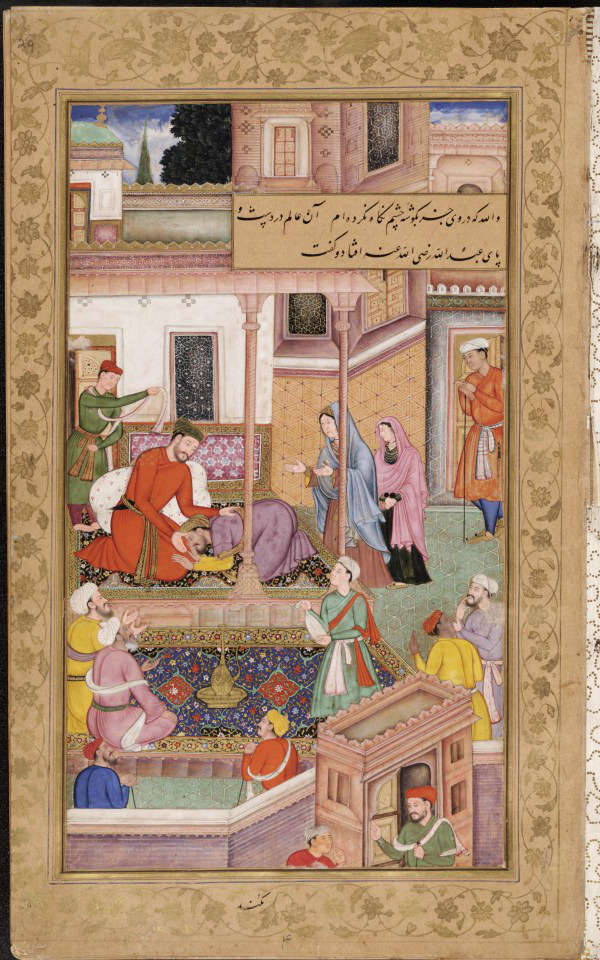 29
والله که در وی جز بگوشه چشم نگاه نکرده ام آن عالم در دست و
پای عبد الله رضی الله عنه افتاد و گفت